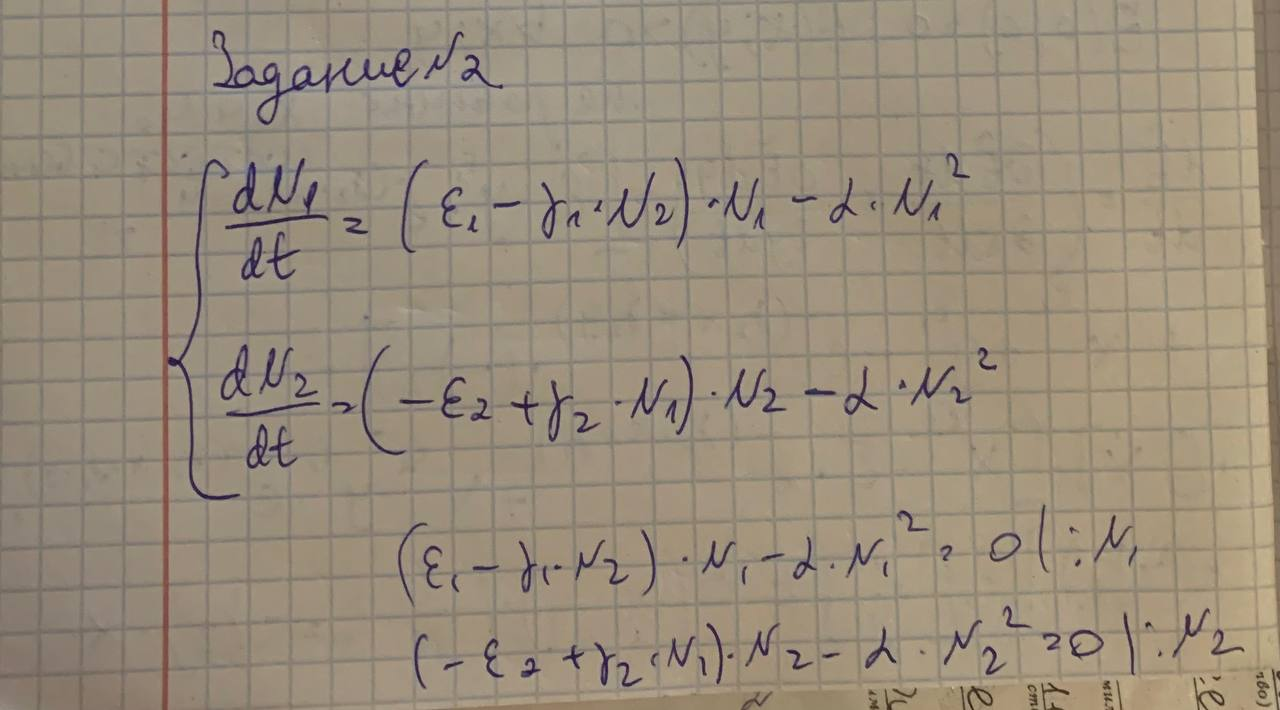 Задание N2
dN₁/dt = (ε₁ - γ₁·N₂)·N₁ - α·N₁²
dN₂/dt = (-ε₂ + γ₂·N₁)·N₂ - α·N₂²
(ε₁ - γ₁·N₂)·N₁ - α·N₁² = 0 | :N₁
(-ε₂ + γ₂·N₁)·N₂ - α·N₂² = 0 | :N₂